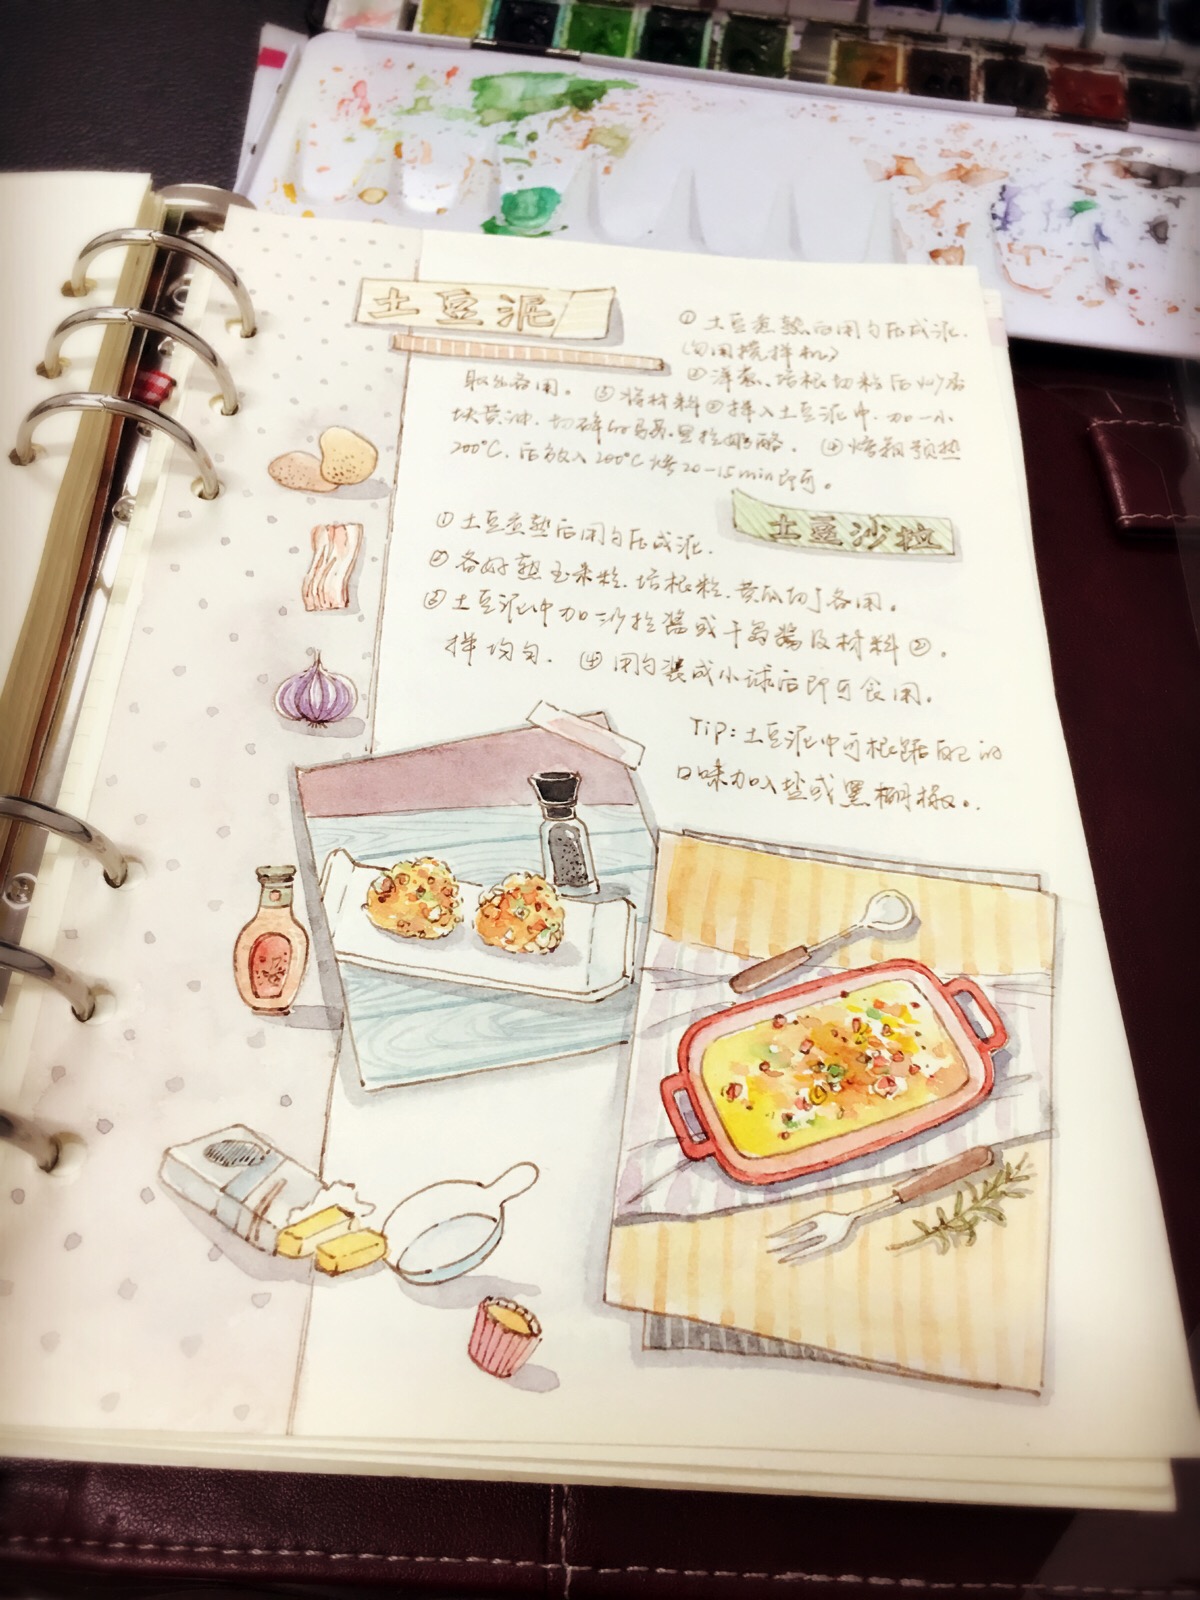 土豆泥
① 土豆煮熟后用勺压成泥.
(勺用搅拌机)
② 洋葱、培根切粒后炒香
取出备用。 ③ 将材料②拌入土豆泥中.加一小
块黄油.切碎的马苏里拉奶酪. ④ 烤箱预热
200℃.后放入200℃烤20-15min即可。
土豆沙拉
① 土豆煮熟后用勺压成泥.
② 备好熟玉米粒.培根粒.黄瓜切丁备用。
③ 土豆泥中加沙拉酱或千岛酱及材料②.
拌均匀. ④ 用勺装成小球后即可食用.
Tip:土豆泥中可根据自己的
口味加入盐或黑胡椒..